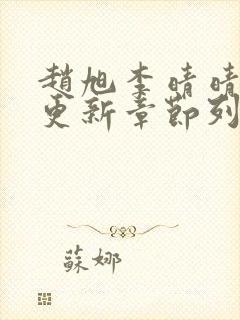 趙旭李晴晴
更新章節列
蘇娜